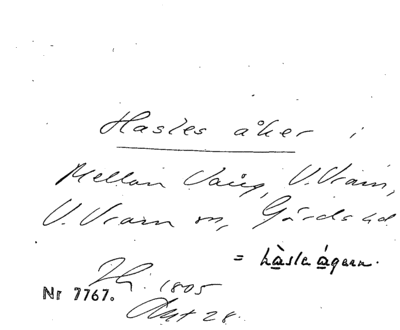 Hasles åker i
Mellan Vång, V. Vram,
V. Vram sn, Gärds hd
= hàsleágern.
Nr 7767.
1805
Akt 28